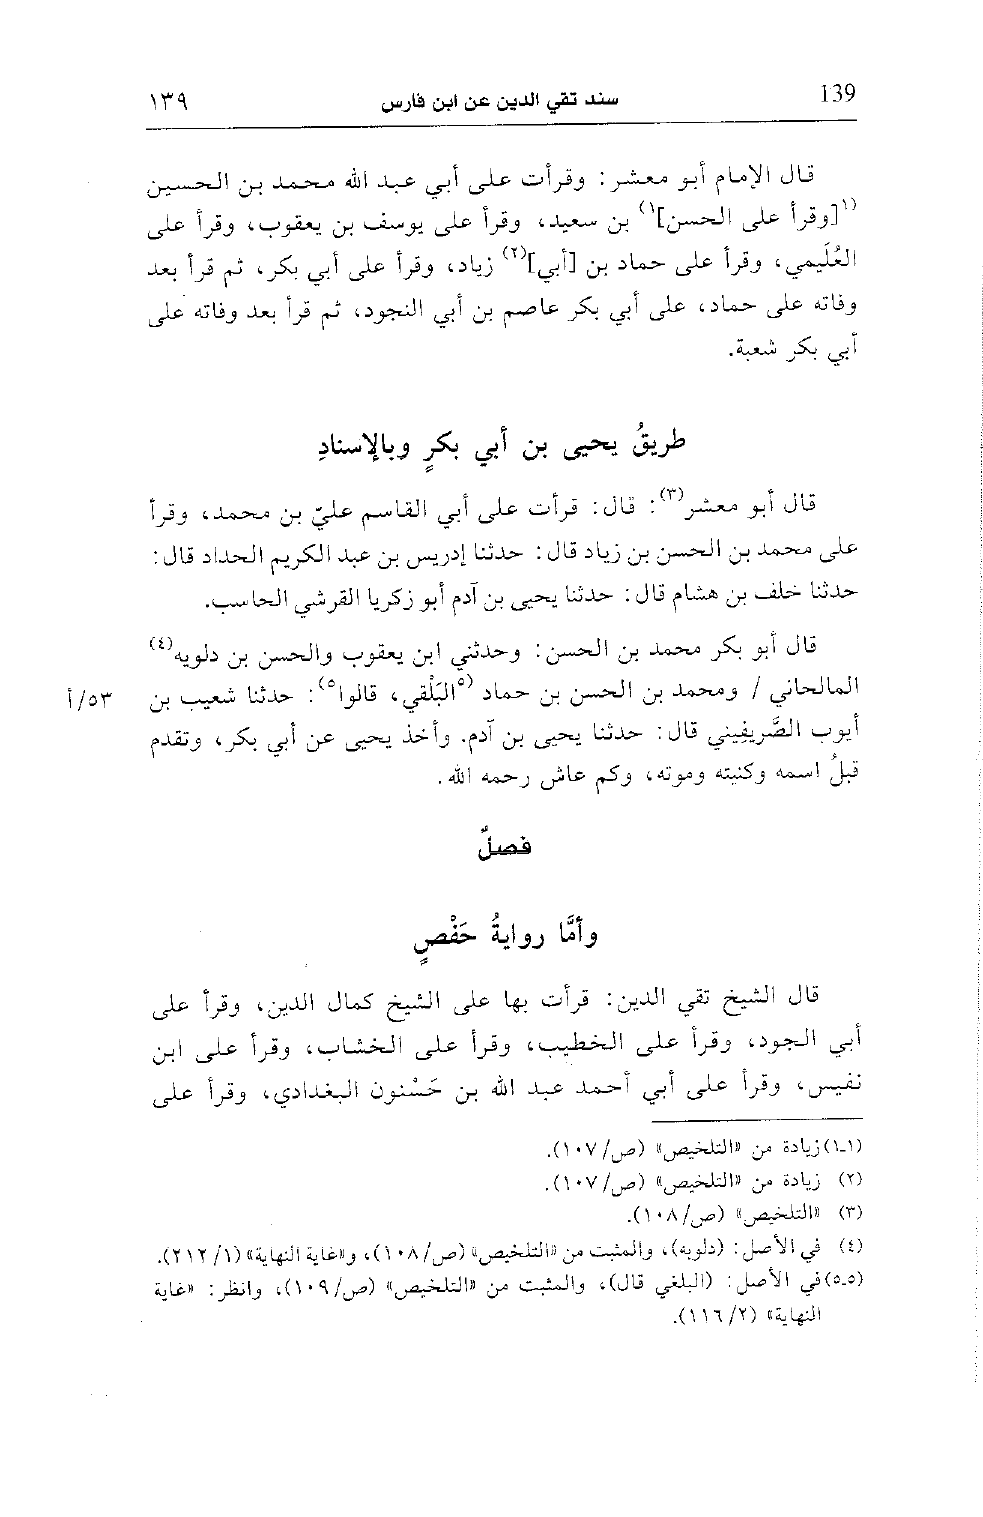 139 سند تقي الدين عن ابن فارس ١٣٩
قال الإمام أبو معشر: وقرأت على أبي عبد الله محمد بن الحسين
(١[وقرأ على الحسن]١) بن سعيد، وقرأ على يوسف بن يعقوب، وقرأ على
العُلَيمي، وقرأ على حماد بن [أبي](٢) زياد، وقرأ على أبي بكر، ثم قرأ بعد
وفاته على حماد، على أبي بكر عاصم بن أبي النجود، ثم قرأ بعد وفاته على
أبي بكر شعبة.
طريقُ يحيى بن أبي بكرٍ وبالإسنادِ
قال أبو معشر(٣): قال: قرأت على أبي القاسم عليّ بن محمد، وقرأ
على محمد بن الحسن بن زياد قال: حدثنا إدريس بن عبد الكريم الحداد قال:
حدثنا خلف بن هشام قال: حدثنا يحيى بن آدم أبو زكريا القرشي الحاسب.
قال أبو بكر محمد بن الحسن: وحدثني ابن يعقوب والحسن بن دلويه(٤)
المالحاني / ومحمد بن الحسن بن حماد (٥البَلْقي، قالوا٥): حدثنا شعيب بن ٥٣/أ
أيوب الصَّريفِيني قال: حدثنا يحيى بن آدم. وأخذ يحيى عن أبي بكر، وتقدم
قبلُ اسمه وكنيته وموته، وكم عاش رحمه الله.
فصلٌ
وأمَّا روايةُ حَفْصٍ
قال الشيخ تقي الدين: قرأت بها على الشيخ كمال الدين، وقرأ على
أبي الجود، وقرأ على الخطيب، وقرأ على الخشاب، وقرأ على ابن
نفيس، وقرأ على أبي أحمد عبد الله بن حَسْنون البغدادي، وقرأ على
(١-١) زيادة من «التلخيص» (ص/١٠٧).
(٢) زيادة من «التلخيص» (ص/١٠٧).
(٣) «التلخيص» (ص/١٠٨).
(٤) في الأصل: (دلوبه)، والمثبت من «التلخيص» (ص/١٠٨)، و«غاية النهاية» (١/٢١٢).
(٥-٥) في الأصل: (البلغي قال)، والمثبت من «التلخيص» (ص/١٠٩)، وانظر: «غاية
النهاية» (٢/١١٦).